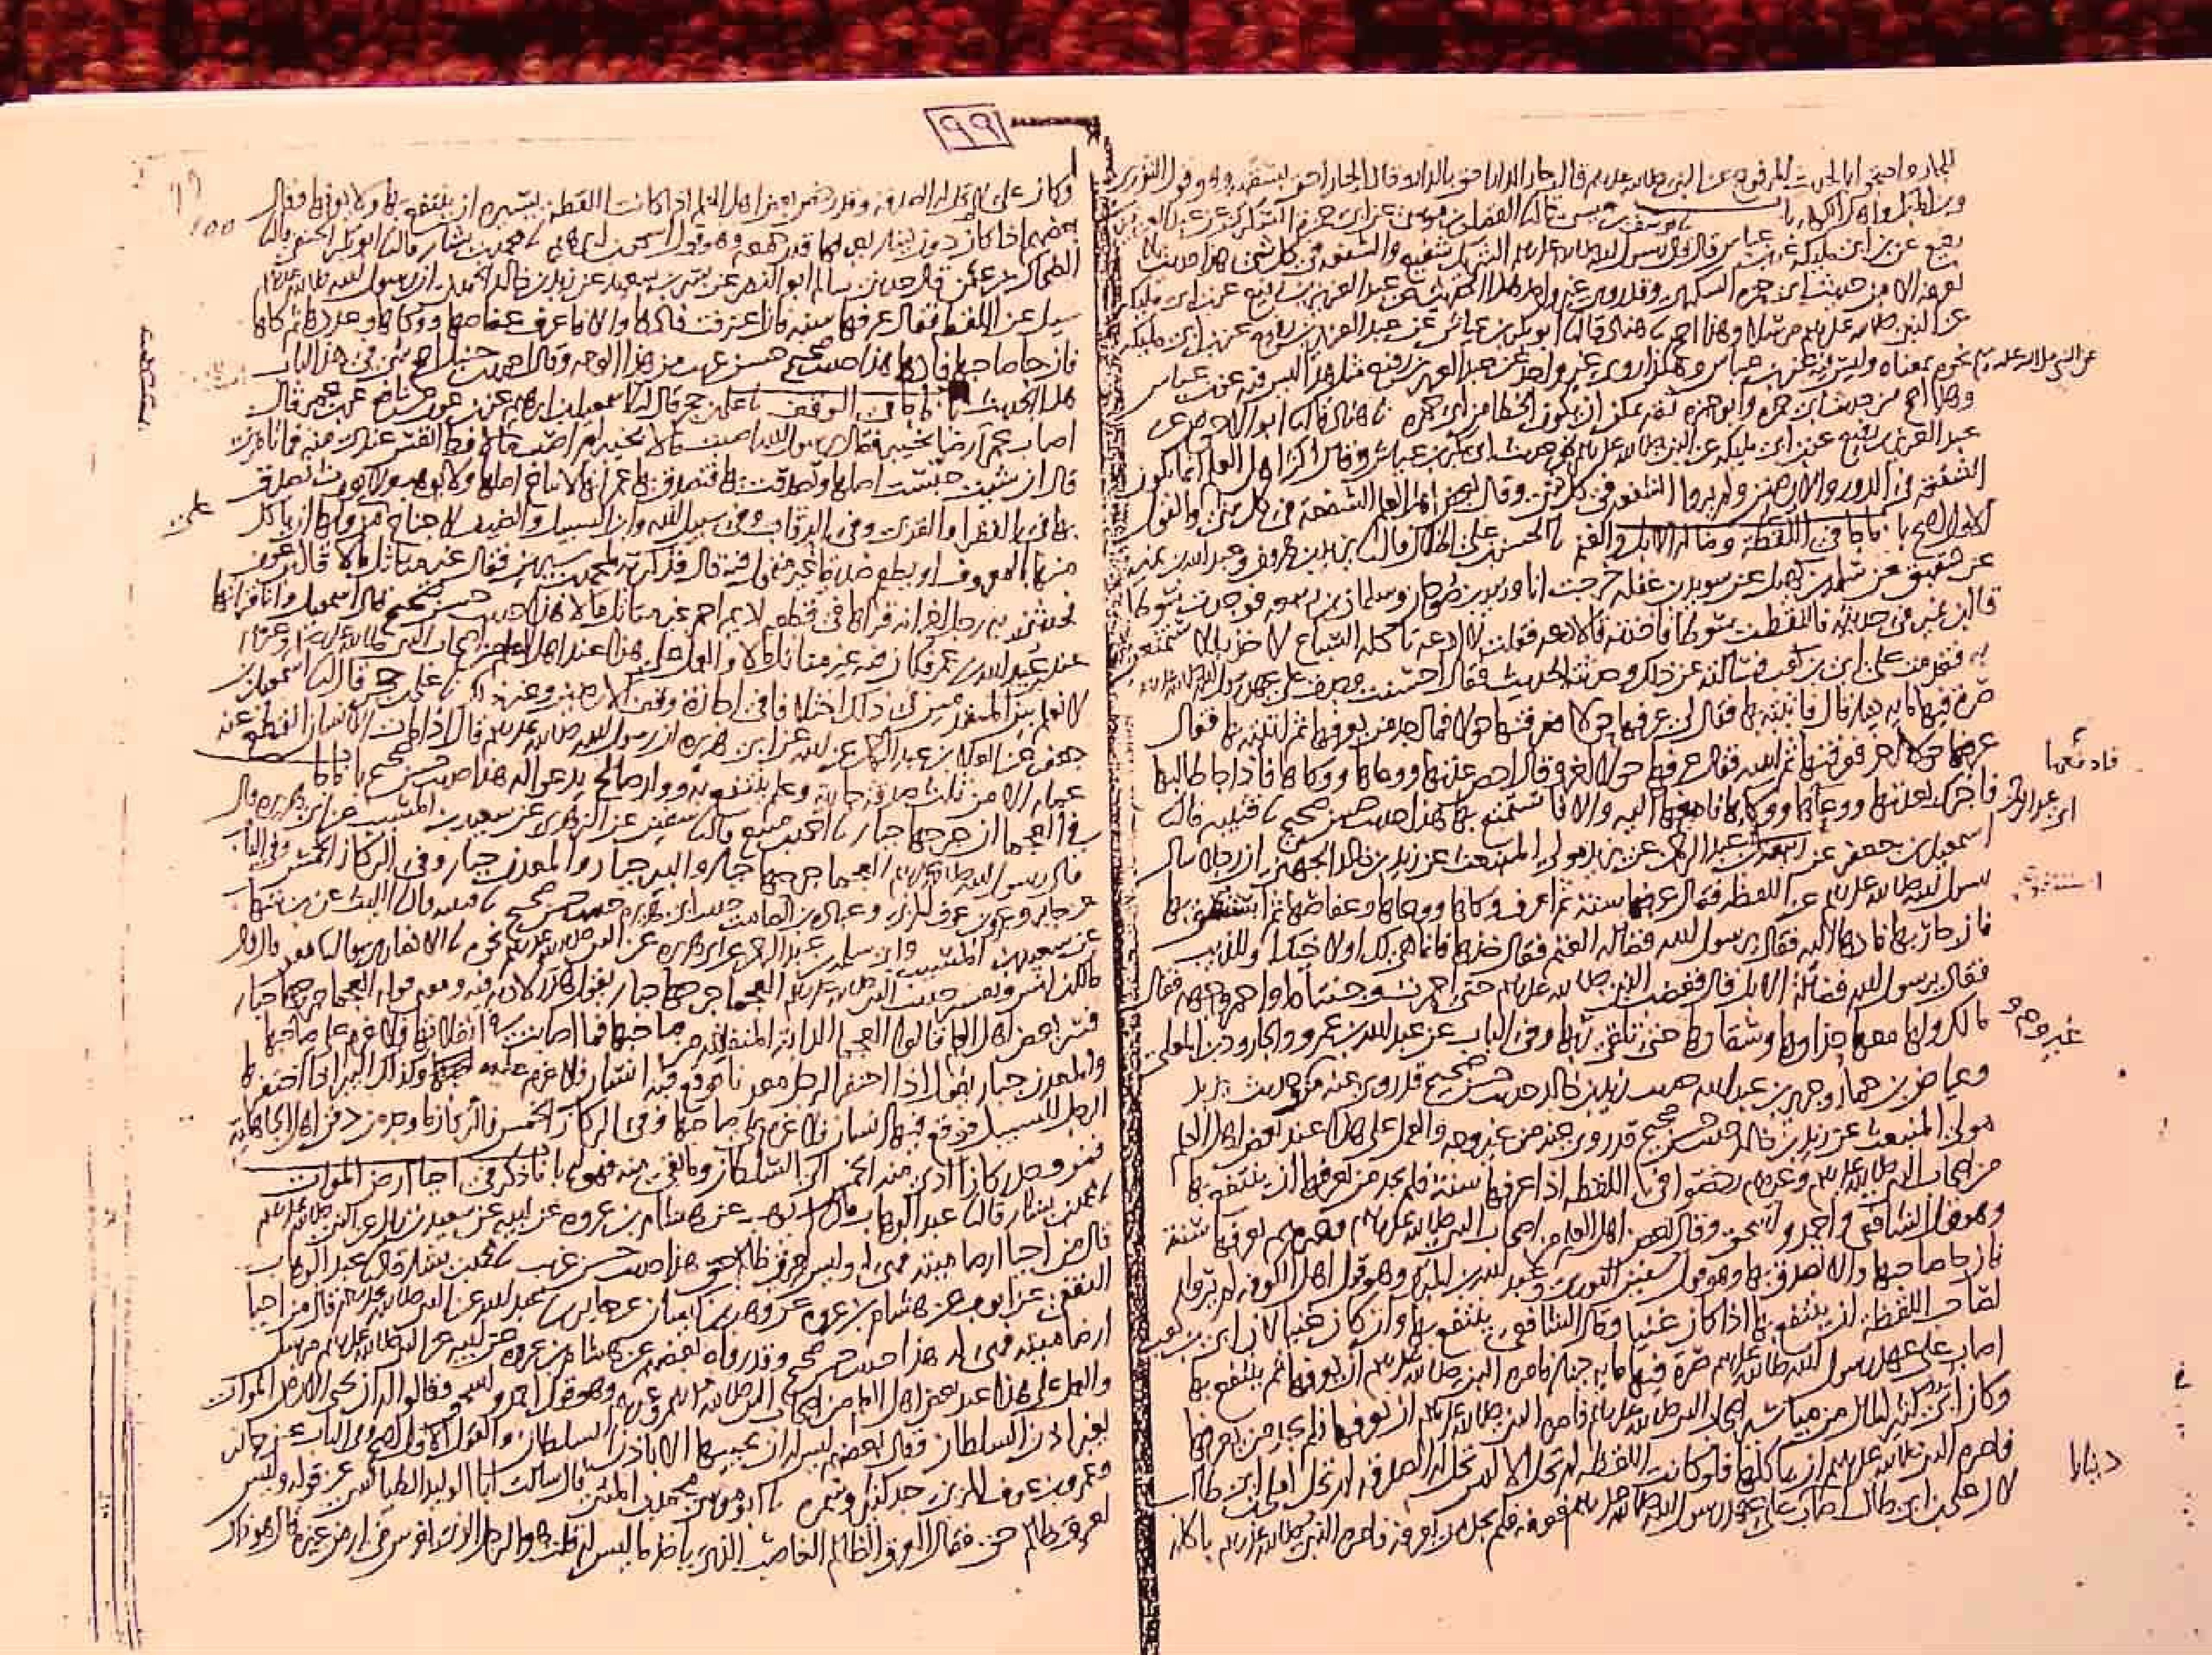 الجار واحتجوا بالحديث المرفوع عن النبي صلى الله عليه وسلم قال جار الدار احق بالدار وقال الجار احق بسقبه وهو قول الثوري
وابن المبارك واهل الكوفة باب يوسف بن عيسى قال الفضل بن موسى عن ابي حمزة السكري عن عبد العزيز بن
رفيع عن ابن ابي مليكة عن ابن عباس قال قال رسول الله صلى الله عليه وسلم الشريك شفيع والشفعة في كل شيء هذا حديث لا
نعرفه الا من حديث ابي حمزة السكري وقد روى غير واحد هذا الحديث عن عبد العزيز بن رفيع عن ابن ابي مليكة
عن النبي صلى الله عليه وسلم مرسلا وهذا اصح هناد قال ابو بكر بن عياش عن عبد العزيز بن رفيع عن ابن ابي مليكة
عن النبي صلى الله عليه وسلم نحوه بمعناه وليس فيه عن ابن عباس وهكذا روى غير واحد عن عبد العزيز بن رفيع مثل هذا ليس فيه عن ابن عباس
وهذا اصح من حديث ابي حمزة وابو حمزة ثقة يمكن ان يكون الخطا من غير ابي حمزة هناد قال ابو الاحوص عن
عبد العزيز بن رفيع عن ابن ابي مليكة عن النبي صلى الله عليه وسلم نحو حديث ابي بكر بن عياش وقال اكثر اهل العلم انما تكون
الشفعة في الدور والارضين ولم يروا الشفعة في كل شيء وقال بعض اهل العلم الشفعة في كل شيء والقول
الاول اصح باب ما جا في اللقطة وضالة الابل والغنم الحسن بن علي الخلال قال يزيد بن هارون وعبد الله بن نمير
عن سلمة بن كهيل عن سويد بن غفلة خرجت انا وزيد بن صوحان وسلمان بن ربيعة فوجدت سوطا
قال ابن نمير في حديثه فالتقطت سوطا فاخذته قالا دعه فقلت لا ادعه تاكله السباع لاخذنه فلاستمتعن
به فقدمت على ابي بن كعب فسالته عن ذلك وحدثته الحديث فقال احسنت وجدت على عهد رسول الله صلى الله عليه وسلم
صرة فيها ماية دينار قال فاتيته بها فقال لي عرفها حولا فعرفتها حولا فما اجد من يعرفها ثم اتيته بها فقال
عرفها حولا اخر فعرفتها ثم اتيته فقال عرفها حولا اخر وقال احص عدتها ووعاها ووكاها فاذا جا طالبها
فاخبرك بعدتها ووعاها ووكاها فادفعها اليه والا فاستمتع بها هذا حديث حسن صحيح قتيبة قال
اسمعيل بن جعفر عن ربيعة بن ابي عبد الرحمن عن يزيد مولى المنبعث عن زيد بن خالد الجهني ان رجلا سال
رسول الله صلى الله عليه وسلم عن اللقطة فقال عرفها سنة ثم اعرف وكاها ووعاها وعفاصها ثم استنفق بها
فان جا ربها فادها اليه فقال يرسول الله فضالة الغنم فقال خذها فانما هي لك او لاخيك او للذيب
فقال يرسول الله فضالة الابل قال فغضب النبي صلى الله عليه وسلم حتى احمرت وجنتاه او احمر وجهه فقال
مالك ولها معها حذاوها وسقاوها حتى تلقى ربها وفي الباب عن عبد الله بن عمرو والجارود بن المعلى
وعياض بن حمار وجرير بن عبد الله حديث زيد بن خالد حديث حسن صحيح قد روي عنه من غير وجه وحديث يزيد
مولى المنبعث عن زيد بن خالد حديث حسن صحيح قد روي عنه من غير وجه والعمل على هذا عند بعض اهل العلم
من اصحاب النبي صلى الله عليه وسلم وغيرهم رخصوا في اللقطة اذا عرفها سنة فلم يجد من يعرفها ان ينتفع بها
وهو قول الشافعي واحمد واسحق وقال بعض اهل العلم من اصحاب النبي صلى الله عليه وسلم وغيرهم يعرفها سنة
فان جا صاحبها والا تصدق بها وهو قول سفين الثوري وعبد الله بن المبارك وهو قول اهل الكوفة لم يروا
لصاحب اللقطة ان ينتفع بها اذا كان غنيا وقال الشافعي ينتفع بها وان كان غنيا لان ابي بن كعب
اصاب على عهد رسول الله صلى الله عليه وسلم صرة فيها ماية دينار فامره النبي صلى الله عليه وسلم ان يعرفها ثم ينتفع بها
وكان ابي كثير المال من مياسير اصحاب النبي صلى الله عليه وسلم فامره النبي صلى الله عليه وسلم ان يعرفها فلم يجد من يعرفها
فامره النبي صلى الله عليه وسلم ان ياكلها فلو كانت اللقطة لم تحل الا لمن تحل له الصدقة لم تحل لعلي بن ابي طالب
لان علي بن ابي طالب اصاب على عهد رسول الله صلى الله عليه وسلم فعرفه فلم يجد من يعرفه فامره النبي صلى الله عليه وسلم باكله
فادفعها
ابي عبد الرحمن
استنفق
غير وجه
دينارا
٩٩
وكان علي لا تحل له الصدقة وقد رخص بعض اهل العلم اذا كانت اللقطة يسيرة ان ينتفع بها ولا يعرفها وقال
بعضهم اذا كان دون دينار يعرفها قدر جمعة وهو قول اسحق بن ابرهيم محمد بن بشار قال ابو بكر الحنفي قال
الضحاك بن عثمن قال حدثني سالم ابو النضر عن بسر بن سعيد عن زيد بن خالد الجهني ان رسول الله صلى الله عليه وسلم
سيل عن اللقطة فقال عرفها سنة فان اعترفت فادها والا فاعرف عفاصها ووكاها وعددها ثم كلها
فان جا صاحبها فادها هذا حديث صحيح حسن غريب من هذا الوجه وقال احمد بن حنبل اصح شيء في هذا الباب
هذا الحديث باب ما جا في الوقف علي بن حجر قال اسمعيل بن ابرهيم عن ابن عون عن نافع عن ابن عمر قال
اصاب عمر ارضا بخيبر فقال يرسول الله اصبت مالا بخيبر لم اصب مالا قط انفس عندي منه فما تامرني
قال ان شيت حبست اصلها وتصدقت بها فتصدق بها عمر انها لا يباع اصلها ولا يوهب ولا يورث تصدق
بها في الفقرا والقربى وفي الرقاب وفي سبيل الله وابن السبيل والضيف لا جناح على من وليها ان ياكل
منها بالمعروف او يطعم صديقا غير متمول فيه قال فذكرته لمحمد بن سيرين فقال غير متاثل مالا قال ابن عون
فحدثني به رجل اخر انه قراها في قطعة اديم احمر غير متاثل مالا هذا حديث حسن صحيح قال اسمعيل وانا قراتها
عند ابن عبيد الله بن عمر فكان فيه غير متاثل مالا والعمل على هذا عند اهل العلم من اصحاب النبي صلى الله عليه وسلم وغيرهم
لا نعلم بين المتقدمين منهم في ذلك اختلافا في اجازة وقف الارضين وغير ذلك علي بن حجر قال اسمعيل بن
جعفر عن العلا بن عبد الرحمن عن ابيه عن ابي هريرة ان رسول الله صلى الله عليه وسلم قال اذا مات الانسان انقطع عنه
عمله الا من ثلث صدقة جارية وعلم ينتفع به وولد صالح يدعو له هذا حديث حسن صحيح باب ما جا
في العجما ان جرحها جبار احمد بن منيع قال سفين عن الزهري عن سعيد بن المسيب عن ابي هريرة قال
قال رسول الله صلى الله عليه وسلم العجما جرحها جبار والبير جبار والمعدن جبار وفي الركاز الخمس وفي الباب
عن جابر وعمرو بن عوف المزني وعبادة بن الصامت حديث ابي هريرة حديث حسن صحيح قتيبة قال الليث عن ابن شهاب
عن سعيد بن المسيب وابي سلمة بن عبد الرحمن عن ابي هريرة عن النبي صلى الله عليه وسلم نحوه الانصاري قال معن قال قال
مالك بن انس وتفسير حديث النبي صلى الله عليه وسلم العجما جرحها جبار يقول هدر لا دية فيه ومعنى قوله العجما جرحها جبار
فسر بعض اهل العلم قالوا العجما الدابة المنفلتة من صاحبها فما اصابت في انفلاتها فلا غرم على صاحبها
والمعدن جبار يقول اذا احتفر الرجل معدنا فوقع فيه انسان فلا غرم عليه وكذلك البير اذا احتفرها
الرجل للسبيل فوقع فيها انسان فلا غرم على صاحبها وفي الركاز الخمس فالركاز ما وجد من دفن اهل الجاهلية
فمن وجد ركازا ادى منه الخمس الى السلطان وما بقي منه فهو له باب ما ذكر في احيا ارض الموات
محمد بن بشار قال عبد الوهاب قال ايوب عن هشام بن عروة عن ابيه عن سعيد بن زيد عن النبي صلى الله عليه وسلم
قال من احيا ارضا ميتة فهي له وليس لعرق ظالم حق هذا حديث حسن غريب محمد بن بشار قال عبد الوهاب
الثقفي عن ايوب عن هشام بن عروة عن وهب بن كيسان عن جابر بن عبد الله عن النبي صلى الله عليه وسلم قال من احيا
ارضا ميتة فهي له هذا حديث حسن صحيح وقد رواه بعضهم عن هشام بن عروة عن ابيه عن النبي صلى الله عليه وسلم مرسل
والعمل على هذا عند بعض اهل العلم من اصحاب النبي صلى الله عليه وسلم وغيرهم وهو قول احمد واسحق وقالوا له ان يحيي الارض الموات
بغير اذن السلطان وقال بعضهم ليس له ان يحييها الا باذن السلطان والقول الاول اصح وفي الباب عن جابر
وعمرو بن عوف المزني جد كثير وسمرة ابو موسى محمد بن المثنى قال سالت ابا الوليد الطيالسي عن قوله وليس
لعرق ظالم حق فقال العرق الظالم الغاصب الذي ياخذ ما ليس له قلت هو الرجل الذي يغرس في ارض غيره قال هو ذاك
على من